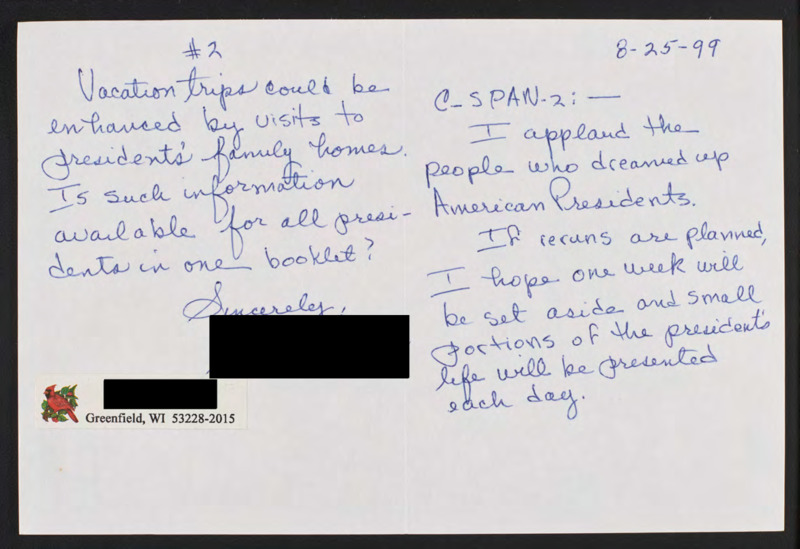 8-25-99
C-SPAN-2:—
I applaud the
people who dreamed up
American Presidents.
If reruns are planned,
I hope one week will
be set aside and small
portions of the president's
life will be presented
each day.
#2
Vacation trips could be
enhanced by visits to
presidents' family homes.
Is such information
available for all presi-
dents in one booklet?
Sincerely,
Greenfield, WI 53228-2015